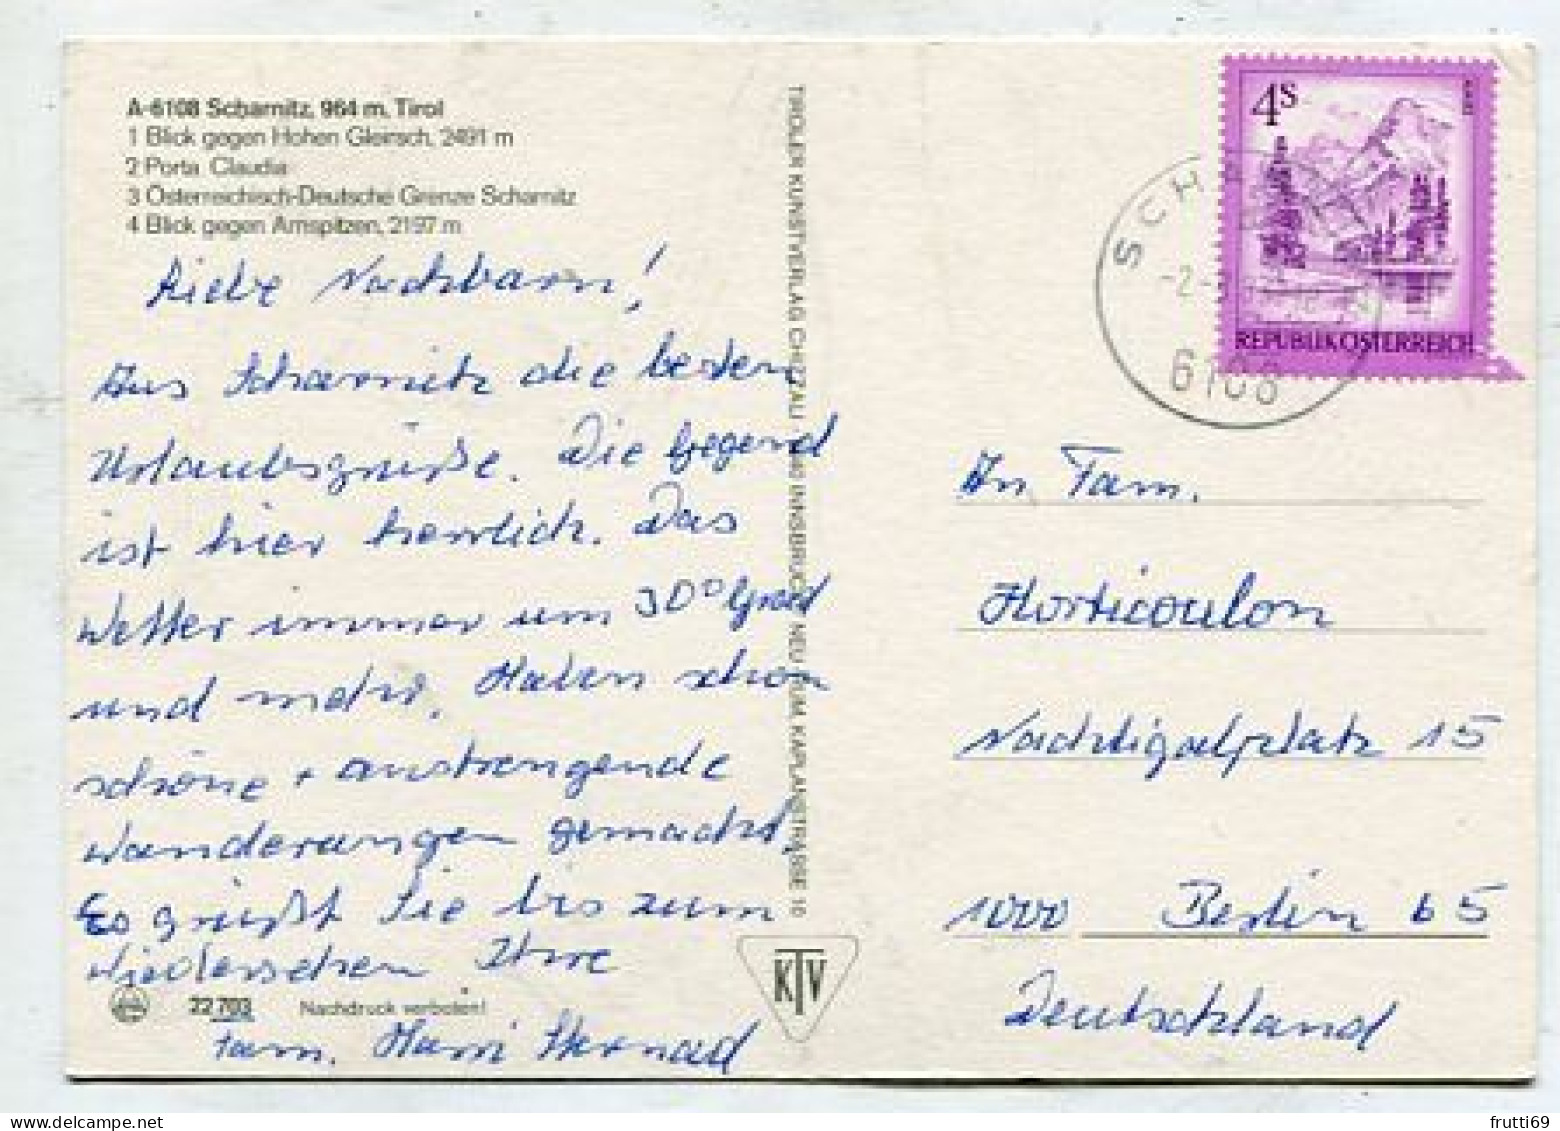 A-6108 Scharnitz, 964 m, Tirol
1 Blick gegen Hohen Gleirsch, 2491 m
2 Porta Claudia
3 Österreichisch-Deutsche Grenze Scharnitz
4 Blick gegen Arnspitzen, 2197 m
Liebe Nachbarn!
Aus Scharnitz die besten
Urlaubsgrüße. Die Gegend
ist hier herrlich. Das
Wetter immer um 30° Grad
und mehr. Haben schon
schöne + anstrengende
Wanderungen gemacht.
Es grüßt Sie bis zum
Wiedersehen Ihre
Fam. Harri
22 703 Nachdruck verboten!
TIROLER KUNSTVERLAG CHIZZALI INNSBRUCK NEU RUM, KAPLANSTRASSE 10
KTV
4S
REPUBLIK ÖSTERREICH
SCH
-2.
6108
An Fam.
Horticoulon
Nachtigalplatz 15
1000 Berlin 65
Deutschland
frutti69